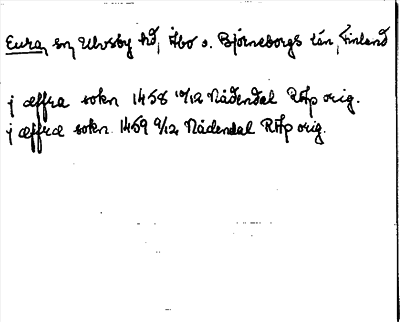 Eura, sn, Ulvsby hd, Åbo o. Björneborgs län, Finland
j æffra sokn 1458 10/12 Nådendal RAp orig.
j æffræ sokn. 1459 9/12 Nådendal RAp orig.